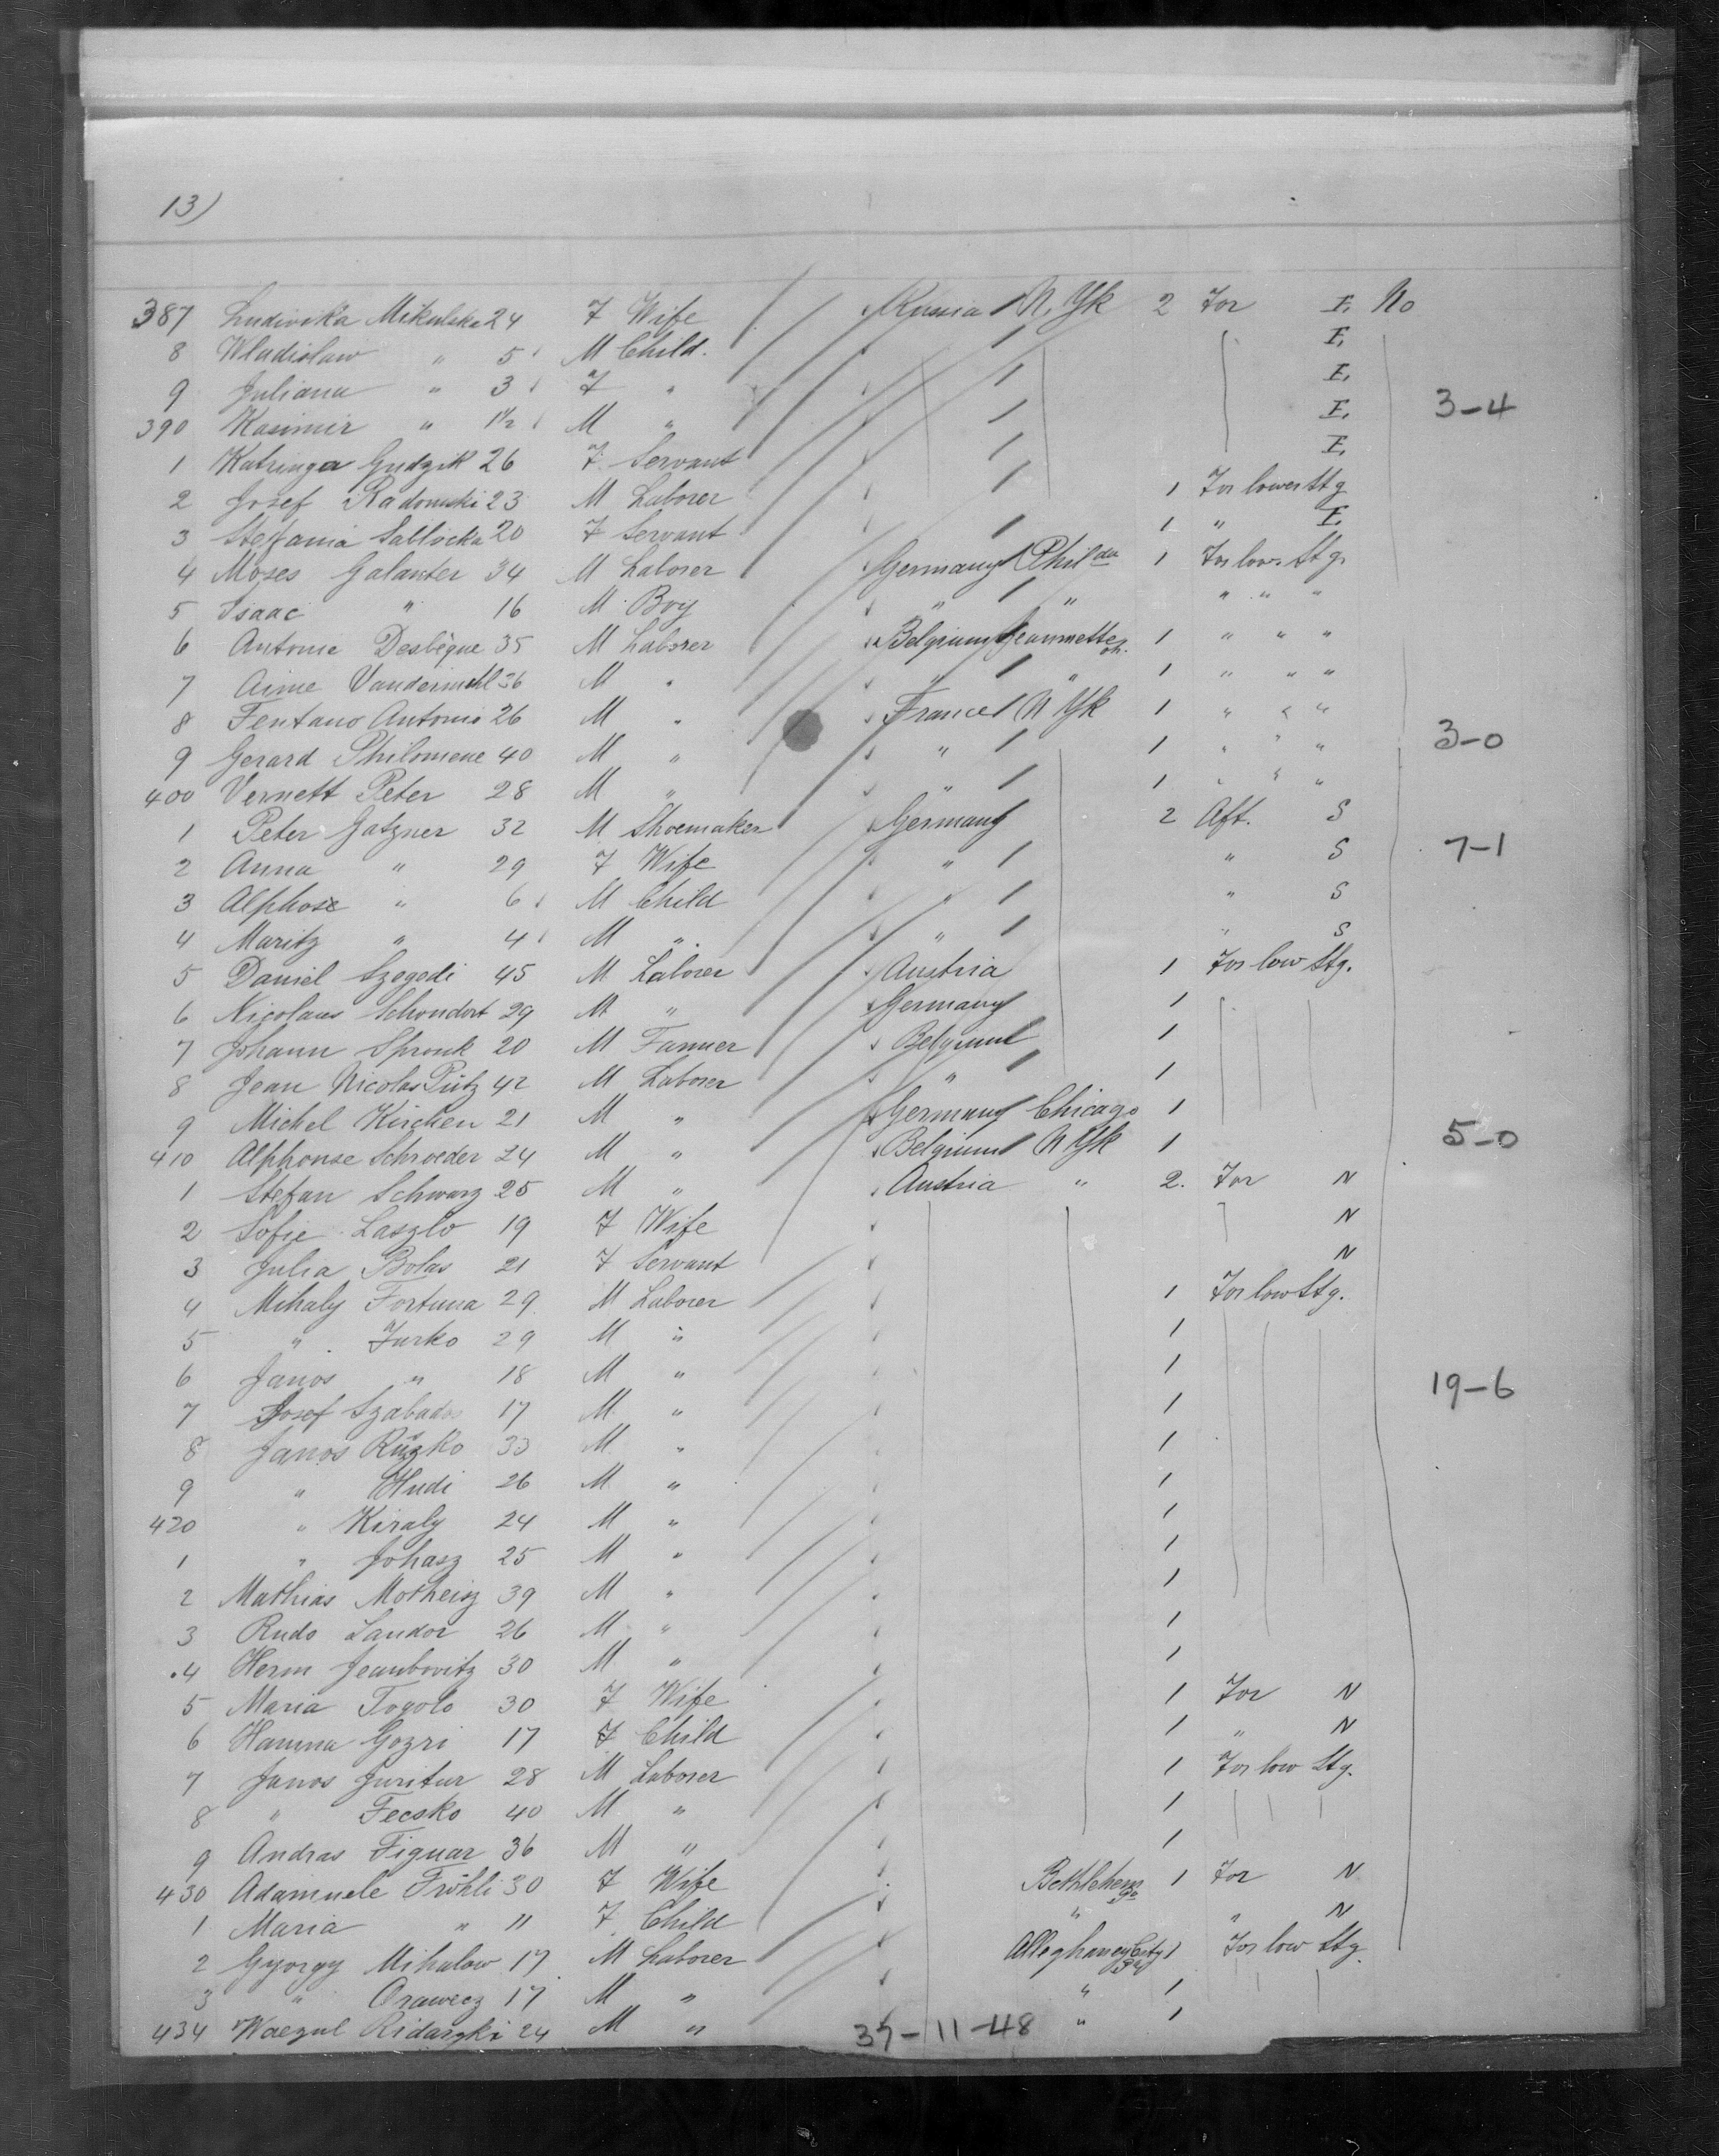 13)
387 Ludivika Mikulska 24 F Wife Russia N. Yk 2 For E. No
8 Wladislaw " 5 M Child. E.
9 Juliana " 3 F " E.
390 Kasimir " 1½ M " E. 3-4
1 Katringa Gudzik 26 F Servant E.
2 Josef Radomski 23 M Laborer 1 For lower Stg
3 Stefania Sablocka 20 F Servant 1 " E.
4 Moses Galanter 34 M Laborer Germany Philda 1 For lower Stg.
5 Isaac " 16 M Boy " " " " "
6 Antonie Desbèque 35 M Laborer Belgium Jeannette 1 " " "
7 Aime 36 M " " " 1 " " "
8 Fentano Antonio 26 M " France N Yk 1 " " "
9 Gerard Philomene 40 M " " 1 " " " 3-0
400 Vernett Peter 28 M " " 1 " " "
1 Peter Gatzner 32 M Shoemaker Germany 2 Aft. S
2 Anna " 29 F Wife " " S 7-1
3 Alphose " 6 M Child " " S
4 Maritz " 4 M " " " S
5 Daniel Szegedi 45 M Laborer Austria 1 For low Stg.
6 Nicolaus Schondort 29 M " Germany 1
7 Johann Spronk 20 M Farmer Belgium 1
8 Jean Nicolas Pütz 42 M Laborer " 1
9 Michel Kirchen 21 M " Germany Chicago 1
410 Alphonse Schroeder 24 M " Belgium N Yk 1 5-0
1 Stefan Schwarz 25 M " Austria " 2. For N
2 Sofie Laszlo 19 F Wife N
3 Julia Bolas 21 F Servant N
4 Mihaly Fortuna 29 M Laborer 1 For low Stg.
5 " Jurko 29 M " 1
6 Janos " 18 M " 1 19-6
7 Josef Szabados 17 M " 1
8 Janos Ruzko 33 M " 1
9 " Hudi 26 M " 1
420 " Kiraly 24 M " 1
1 " Johasz 25 M " 1
2 Mathias Motheisz 39 M " 1
3 Rudo Sandor 26 M " 1
4 Herm Jeanbovitz 30 M " 1
5 Maria Togolo 30 F Wife 1 For N
6 Hanna Gozri 17 F Child 1 " N
7 Janos Juritur 28 M Laborer 1 For low Stg.
8 " Fecsko 40 M " 1
9 Andras Figuar 36 M " 1
430 Adamnele Fröhli 30 F Wife Bethlehem Pa 1 For N
1 Maria " 11 F Child " " N
2 Gyorgy Mihalow 17 M Laborer Alleghaney City Pa 1 For low Stg.
3 " Orawecz 17 M " " 1
434 Ridarzki 24 M " " 1
37-11-48